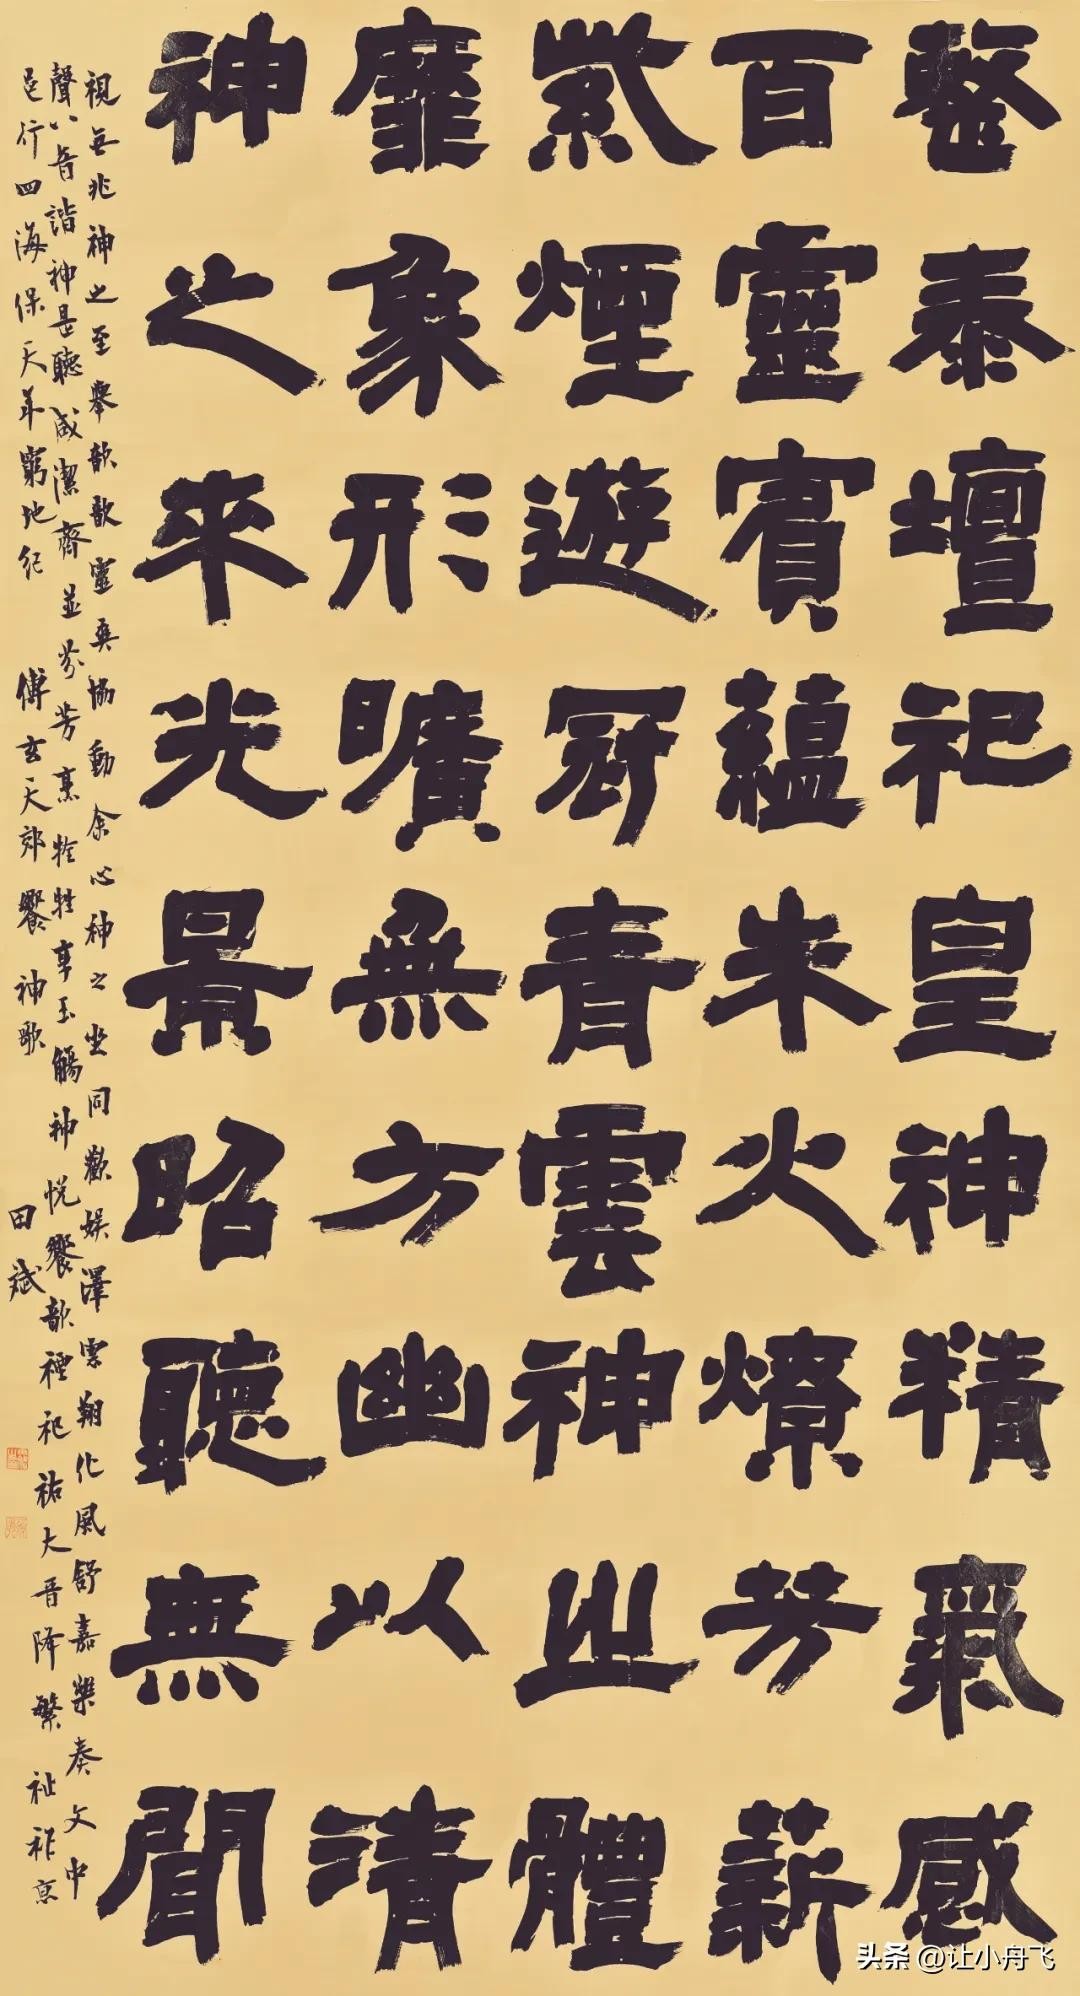 整泰壇祀皇神精氣感
百靈賓蘊朱火燎芳薪
紫煙遊冠青雲神之體
靡象形曠無方幽以清
神之來光景昭聽無聞
視無兆神之至舉歆歆靈爽協動余心神之坐同歡娛澤雲翔化風舒嘉樂奏文中
聲八音諧神是聽咸潔齊並芬芳烹牷牲享玉觴神悅饗歆禋祀祐大晉降繁祉祚京
邑行四海保天年窮地紀 傅玄天郊饗神歌 田斌
头条 @让小舟飞